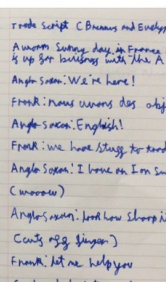 Trade Script (Brennus and Evelyn
A warm Sunny day in France
is up for business with the A
Anglo Saxon: We're here!
Frank: nous avons des obj
Anglo Saxon: English!
Frank: we have stuff to trad
Anglo Saxon: I have an I on su
(woooow)
Anglo saxon: look how sharp i
(cuts off finger)
Frank: let me help you